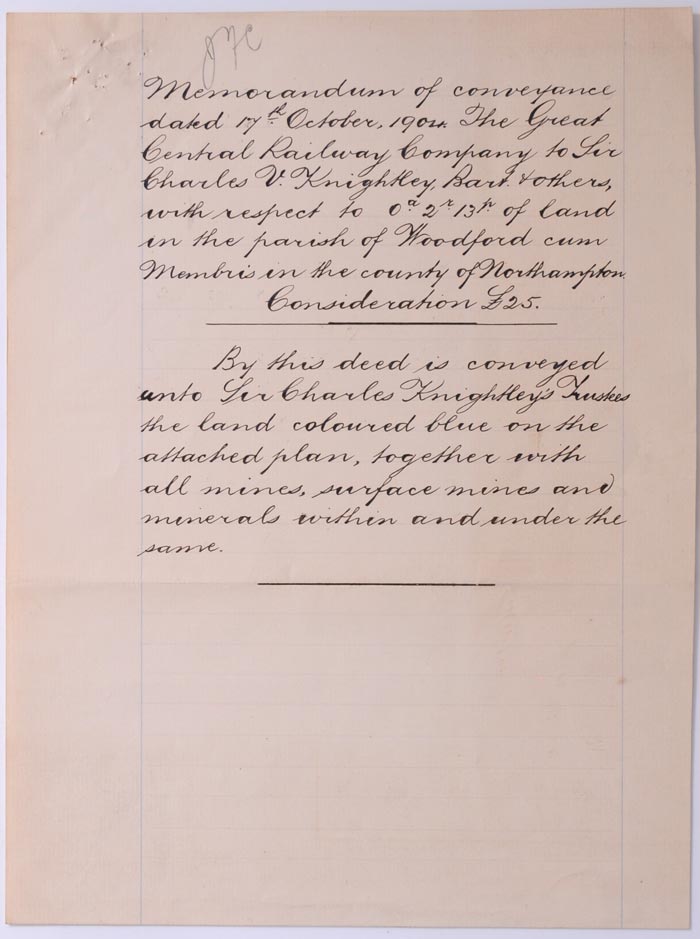 JFC
Memorandum of conveyance
dated 17th October, 1904. The Great
Central Railway Company to Sir
Charles V. Knightley, Bart. & others,
with respect to 0a 2r 13p of land
in the parish of Woodford cum
Membris in the county of Northampton.
Consideration £25.
By this deed is conveyed
unto Sir Charles Knightley's Trustees
the land coloured blue on the
attached plan, together with
all mines, surface mines and
minerals within and under the
same.